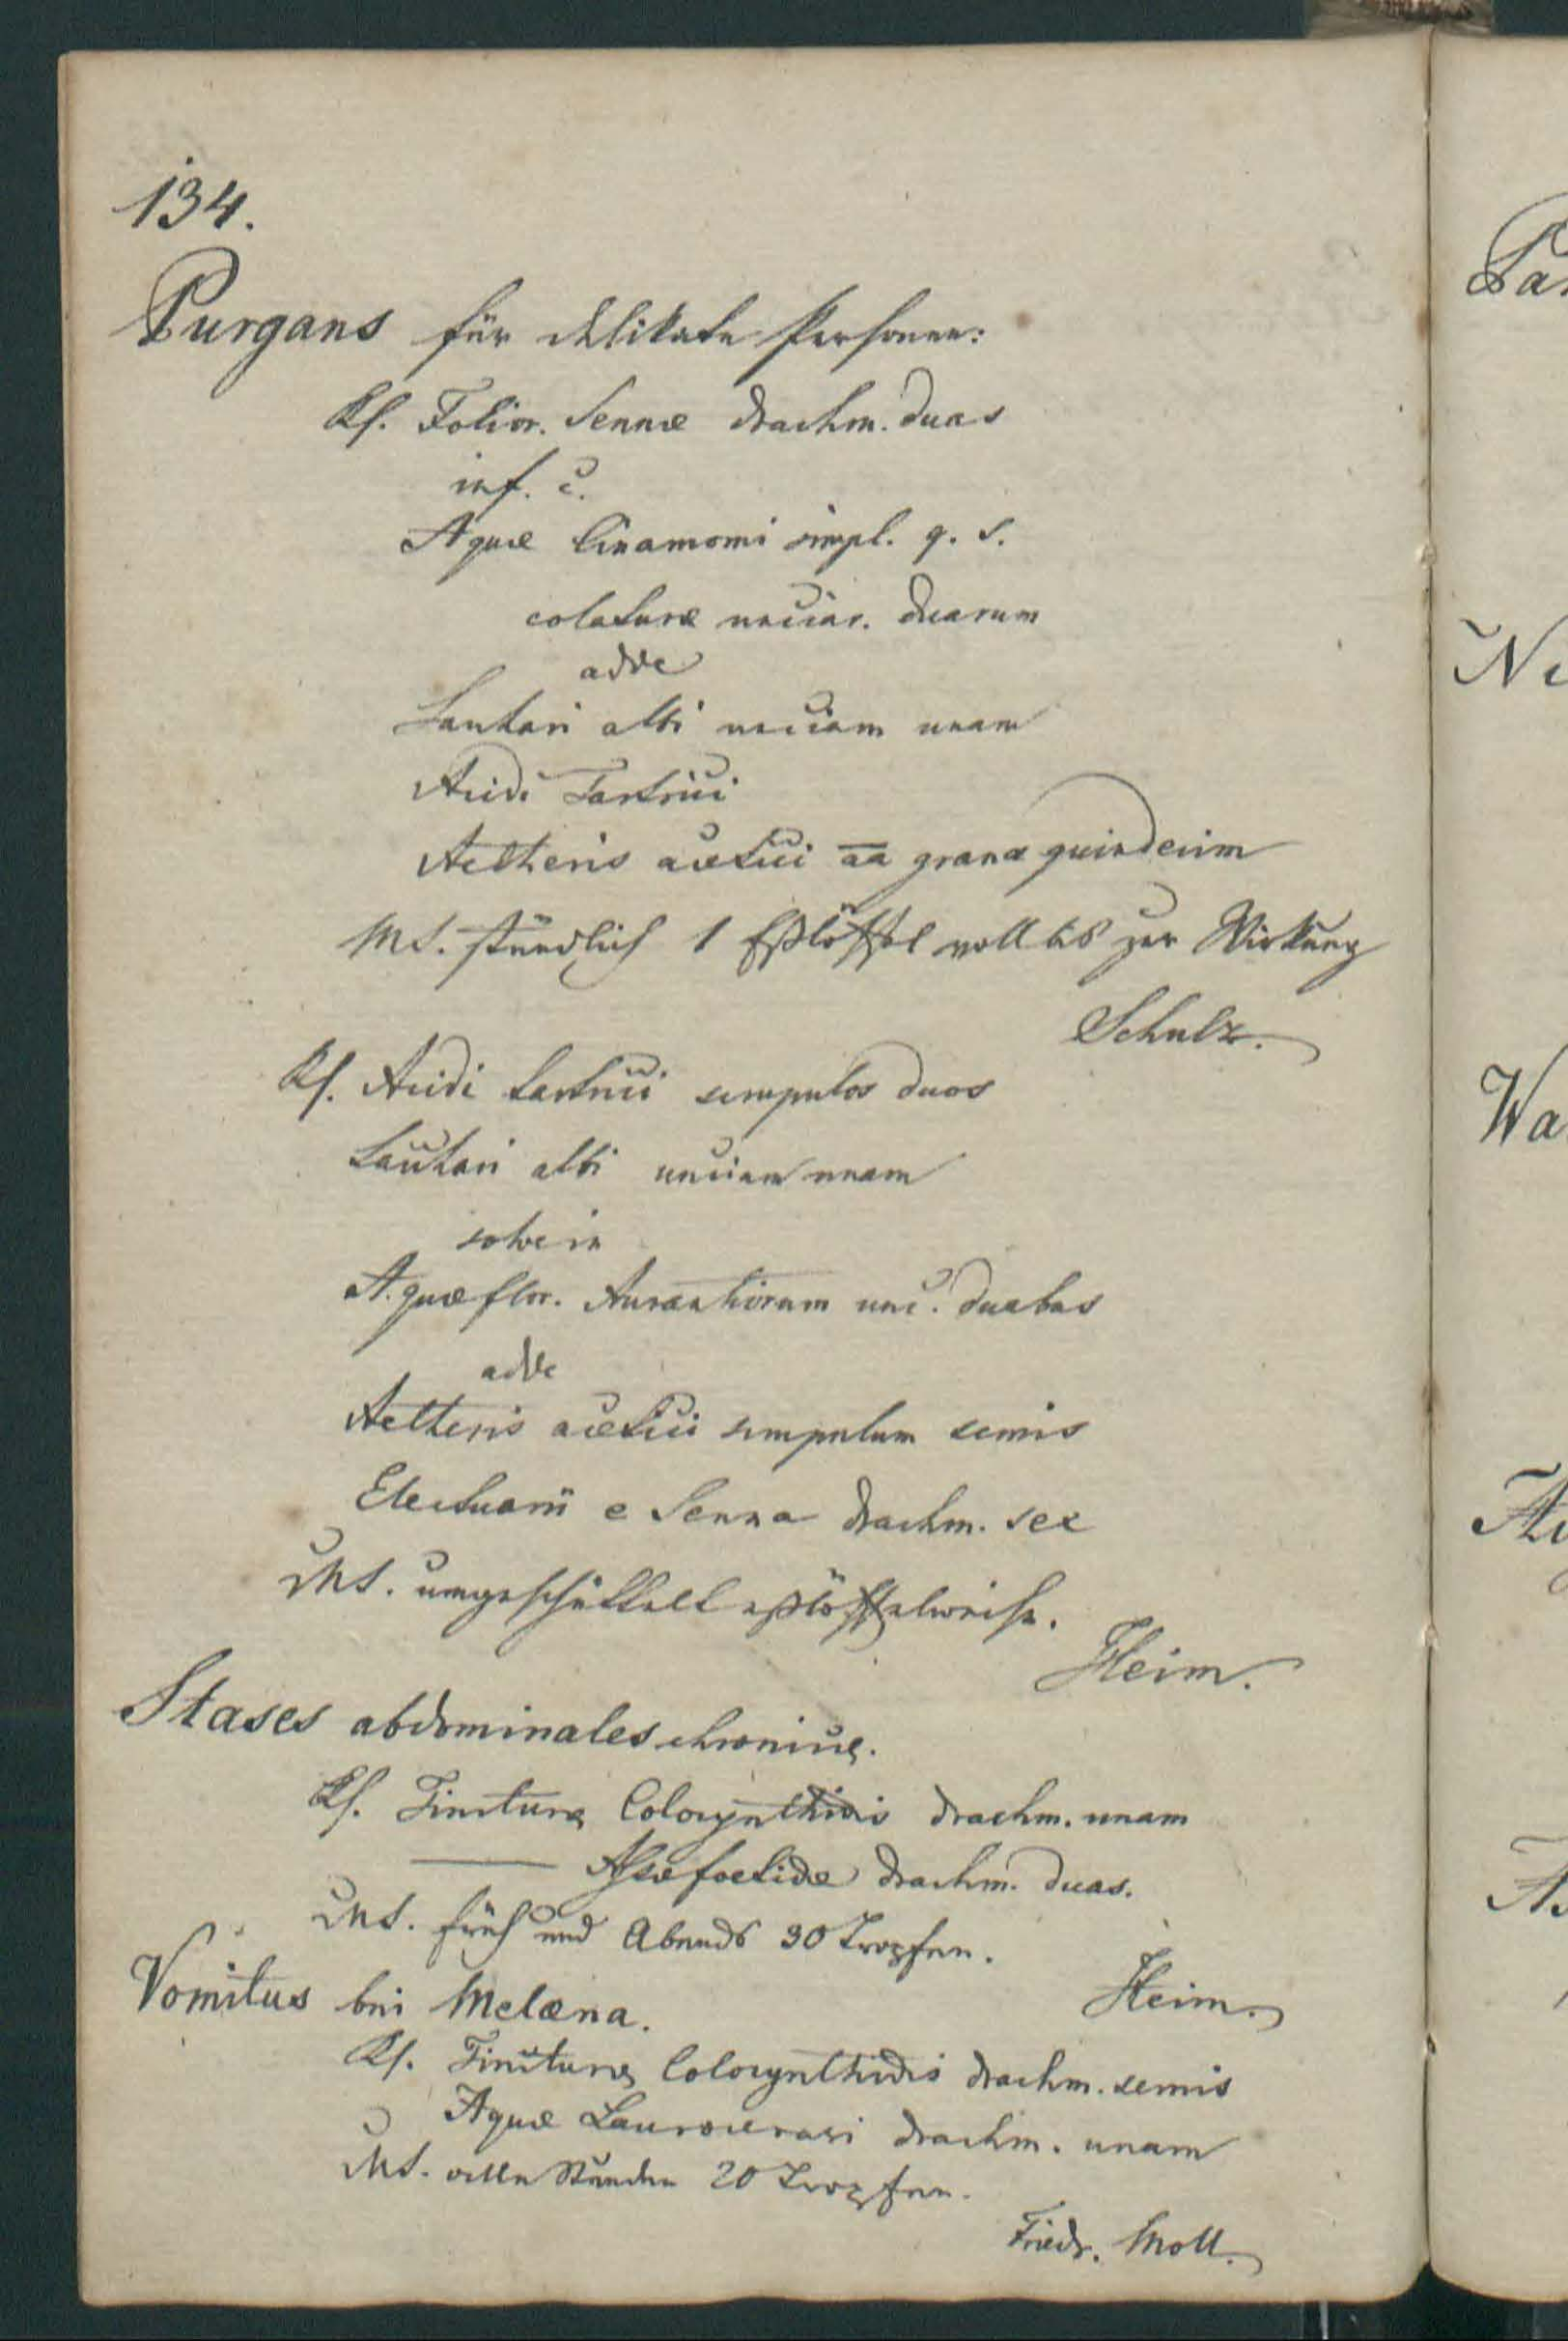 134.
Purgans für delikate Personen:
Rf. Folior. Sennæ drachm. duas
inf. c.
Aquæ Cinamomi simpl. q. s.
colaturæ unciar. duarum
adde
Sachari albi unciam unam
Acidi Tartrici
Aetheris acetici aa grana quindecim
MS. stündlich 1 Eßlöffel voll bis zur Wirkung
Schulz.
Rf. Acidi tartrici scrupulos duos
Sachari albi unciam unam
solve in
Aquæ flor. Aurantiorum unc. duabus
adde
Aetheris acetici scrupulum semis
Electuarii e Senna drachm. sex
MS. umgeschüttelt eßlöffelweise.
Heim.
Stases abdominales chronicæ.
Rf. Tincturæ Colocynthidis drachm. unam
—— Assæ foetidæ drachm. duas.
MS. früh und Abends 30 Tropfen.
Heim.
Vomitus bei Melæna.
Rf. Tincturæ Colocynthidis drachm. semis
Aquæ Laurocerasi drachm. unam
MS. alle Stunden 20 Tropfen.
Friedr. Moll.
Pa
Ne
Wa
A